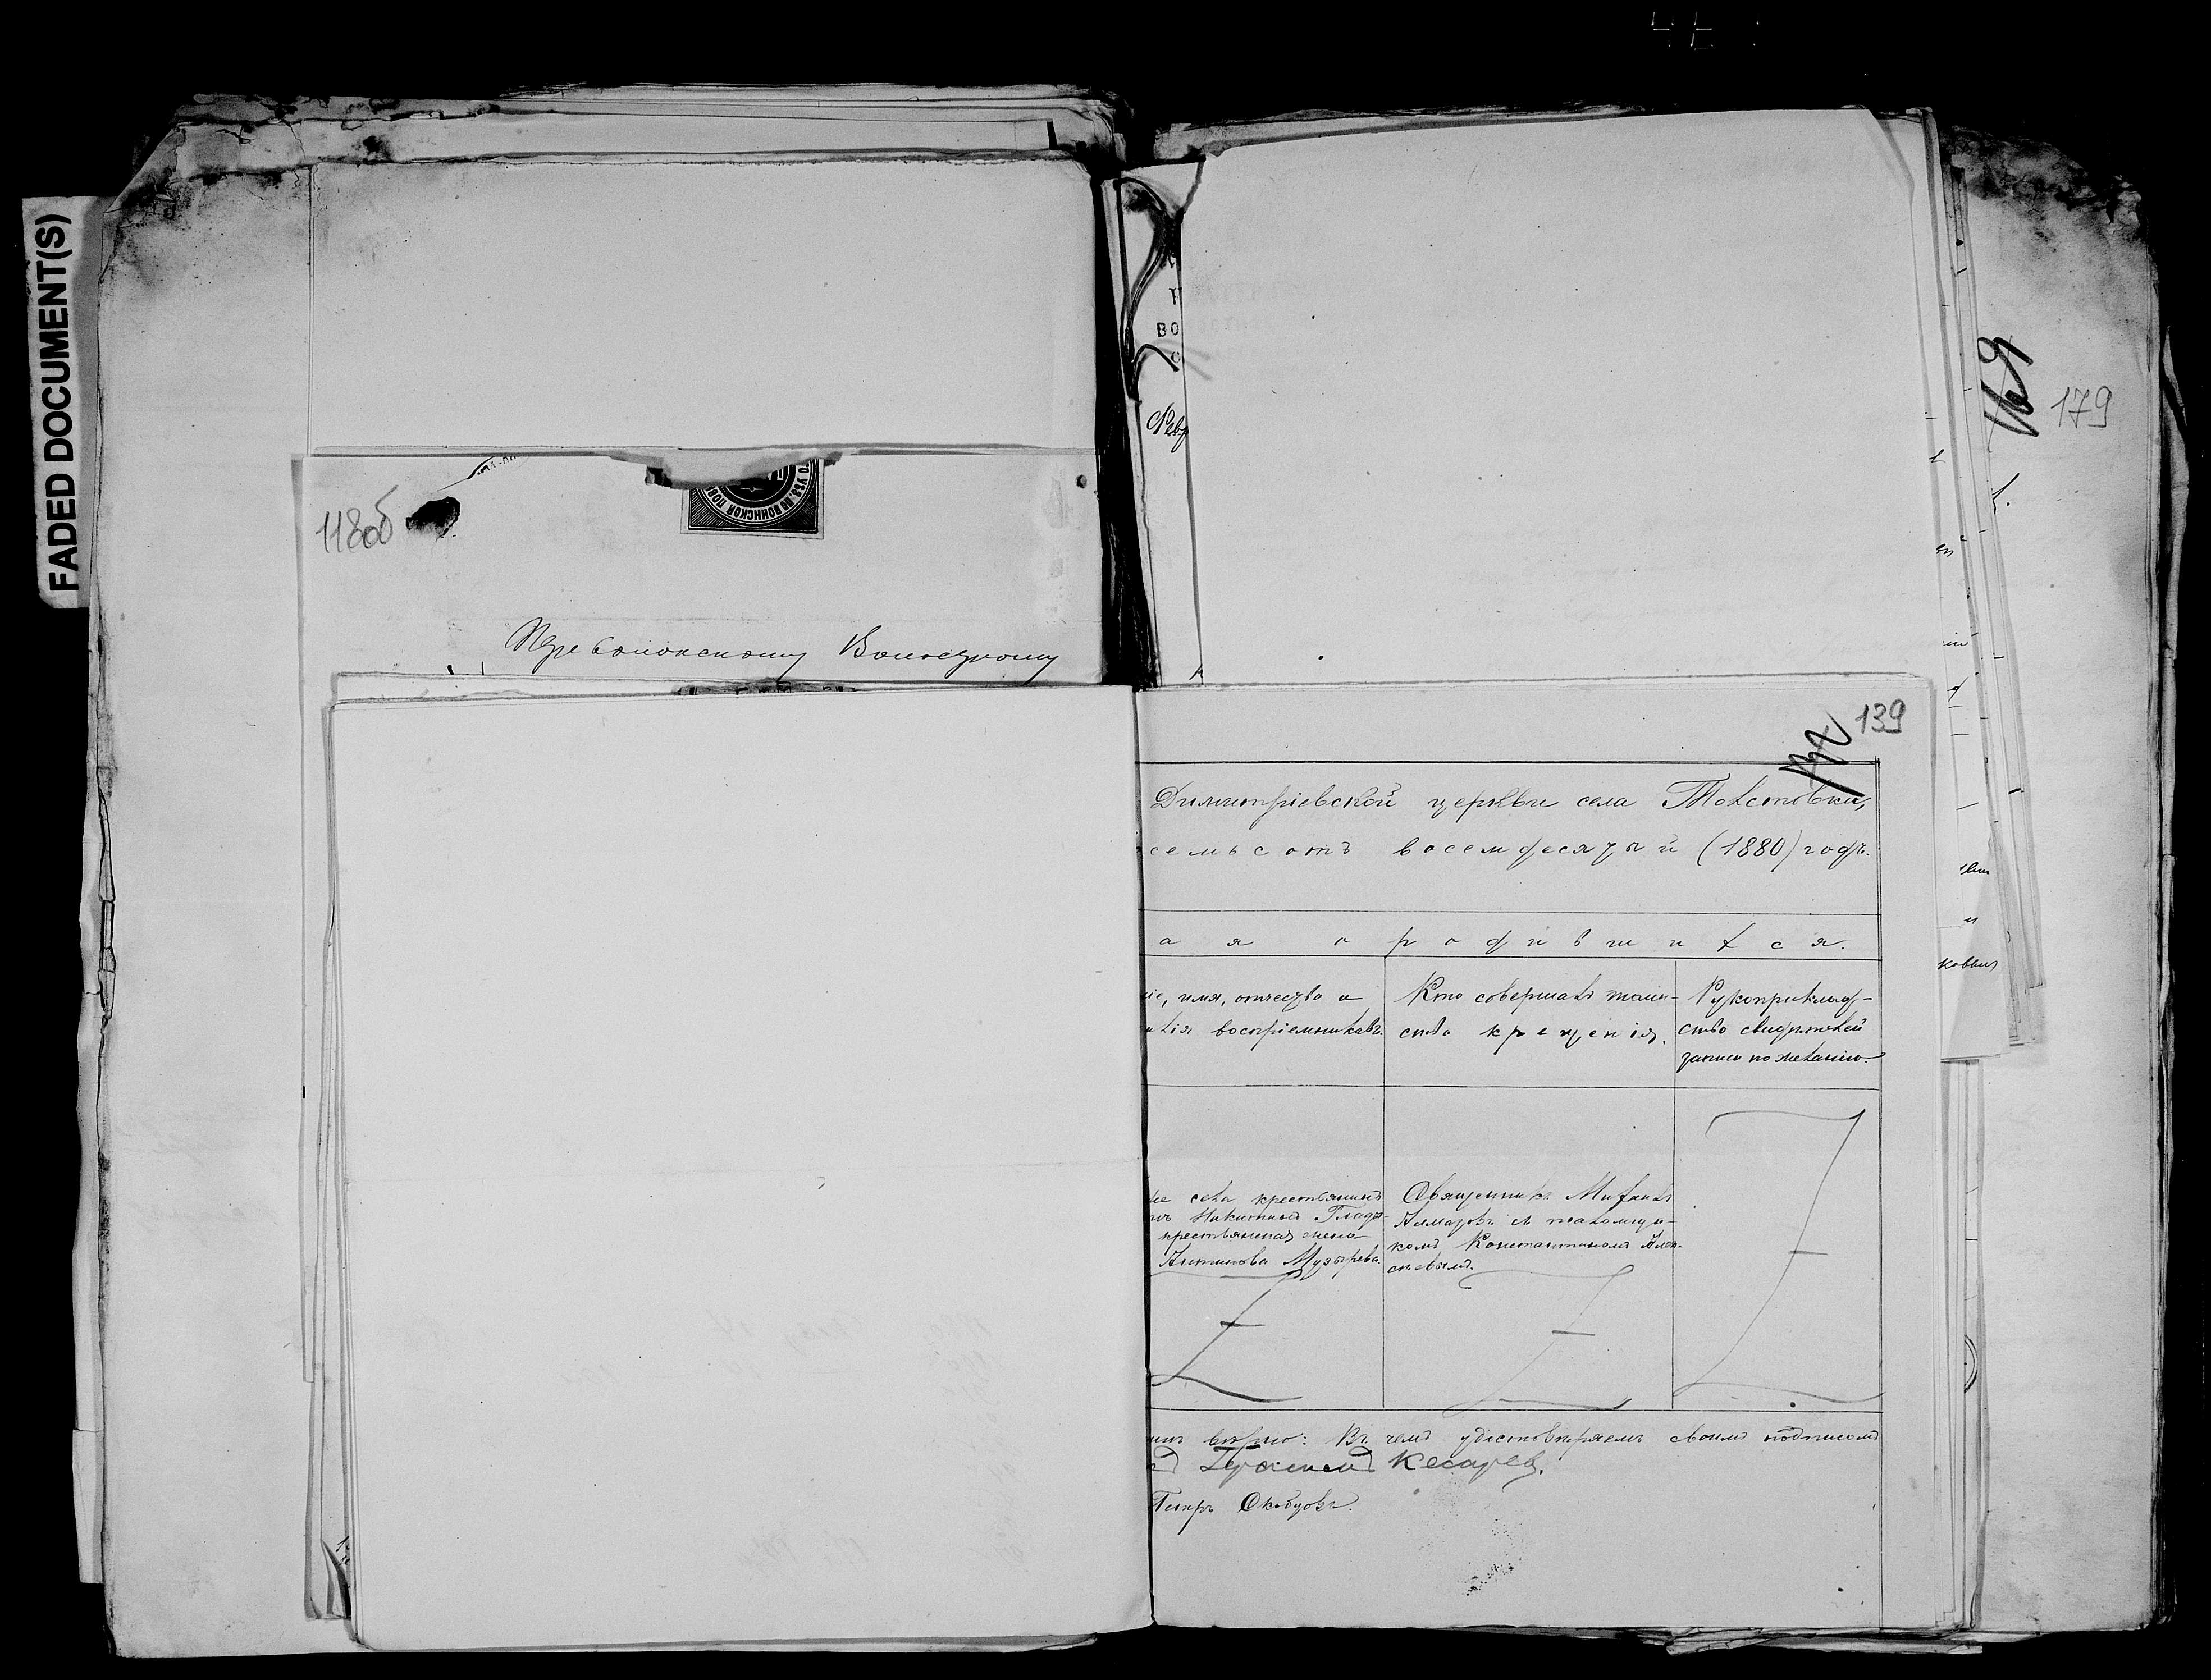 FADED DOCUMENT(S)
118об
УѢЗ. ПО ВОИНСКОЙ ПОВ
Волостному
ВО
169
179
139
Димитріевской церкви села Товстовки,
семьсотъ восемдесятый (1880) годъ.
а я о родившихся.
іе, имя, отчество и
лія воспріемниковъ.
Кто совершалъ таин-
ство крещенія.
Рукоприклад-
ство свидѣтелей
записи по желанію.
же села крестьянинъ
Никитинъ Глад
крестьянская жена
Антипова Музырева.
Священникъ Михаилъ
Алмазовъ съ псаломщи-
комъ Константиномъ Алек-
сѣевымъ.
вѣрно: Въ чемъ удостовѣряемъ своимъ подписомъ
Герасимъ Кесарев.
Петръ Скобцовъ.